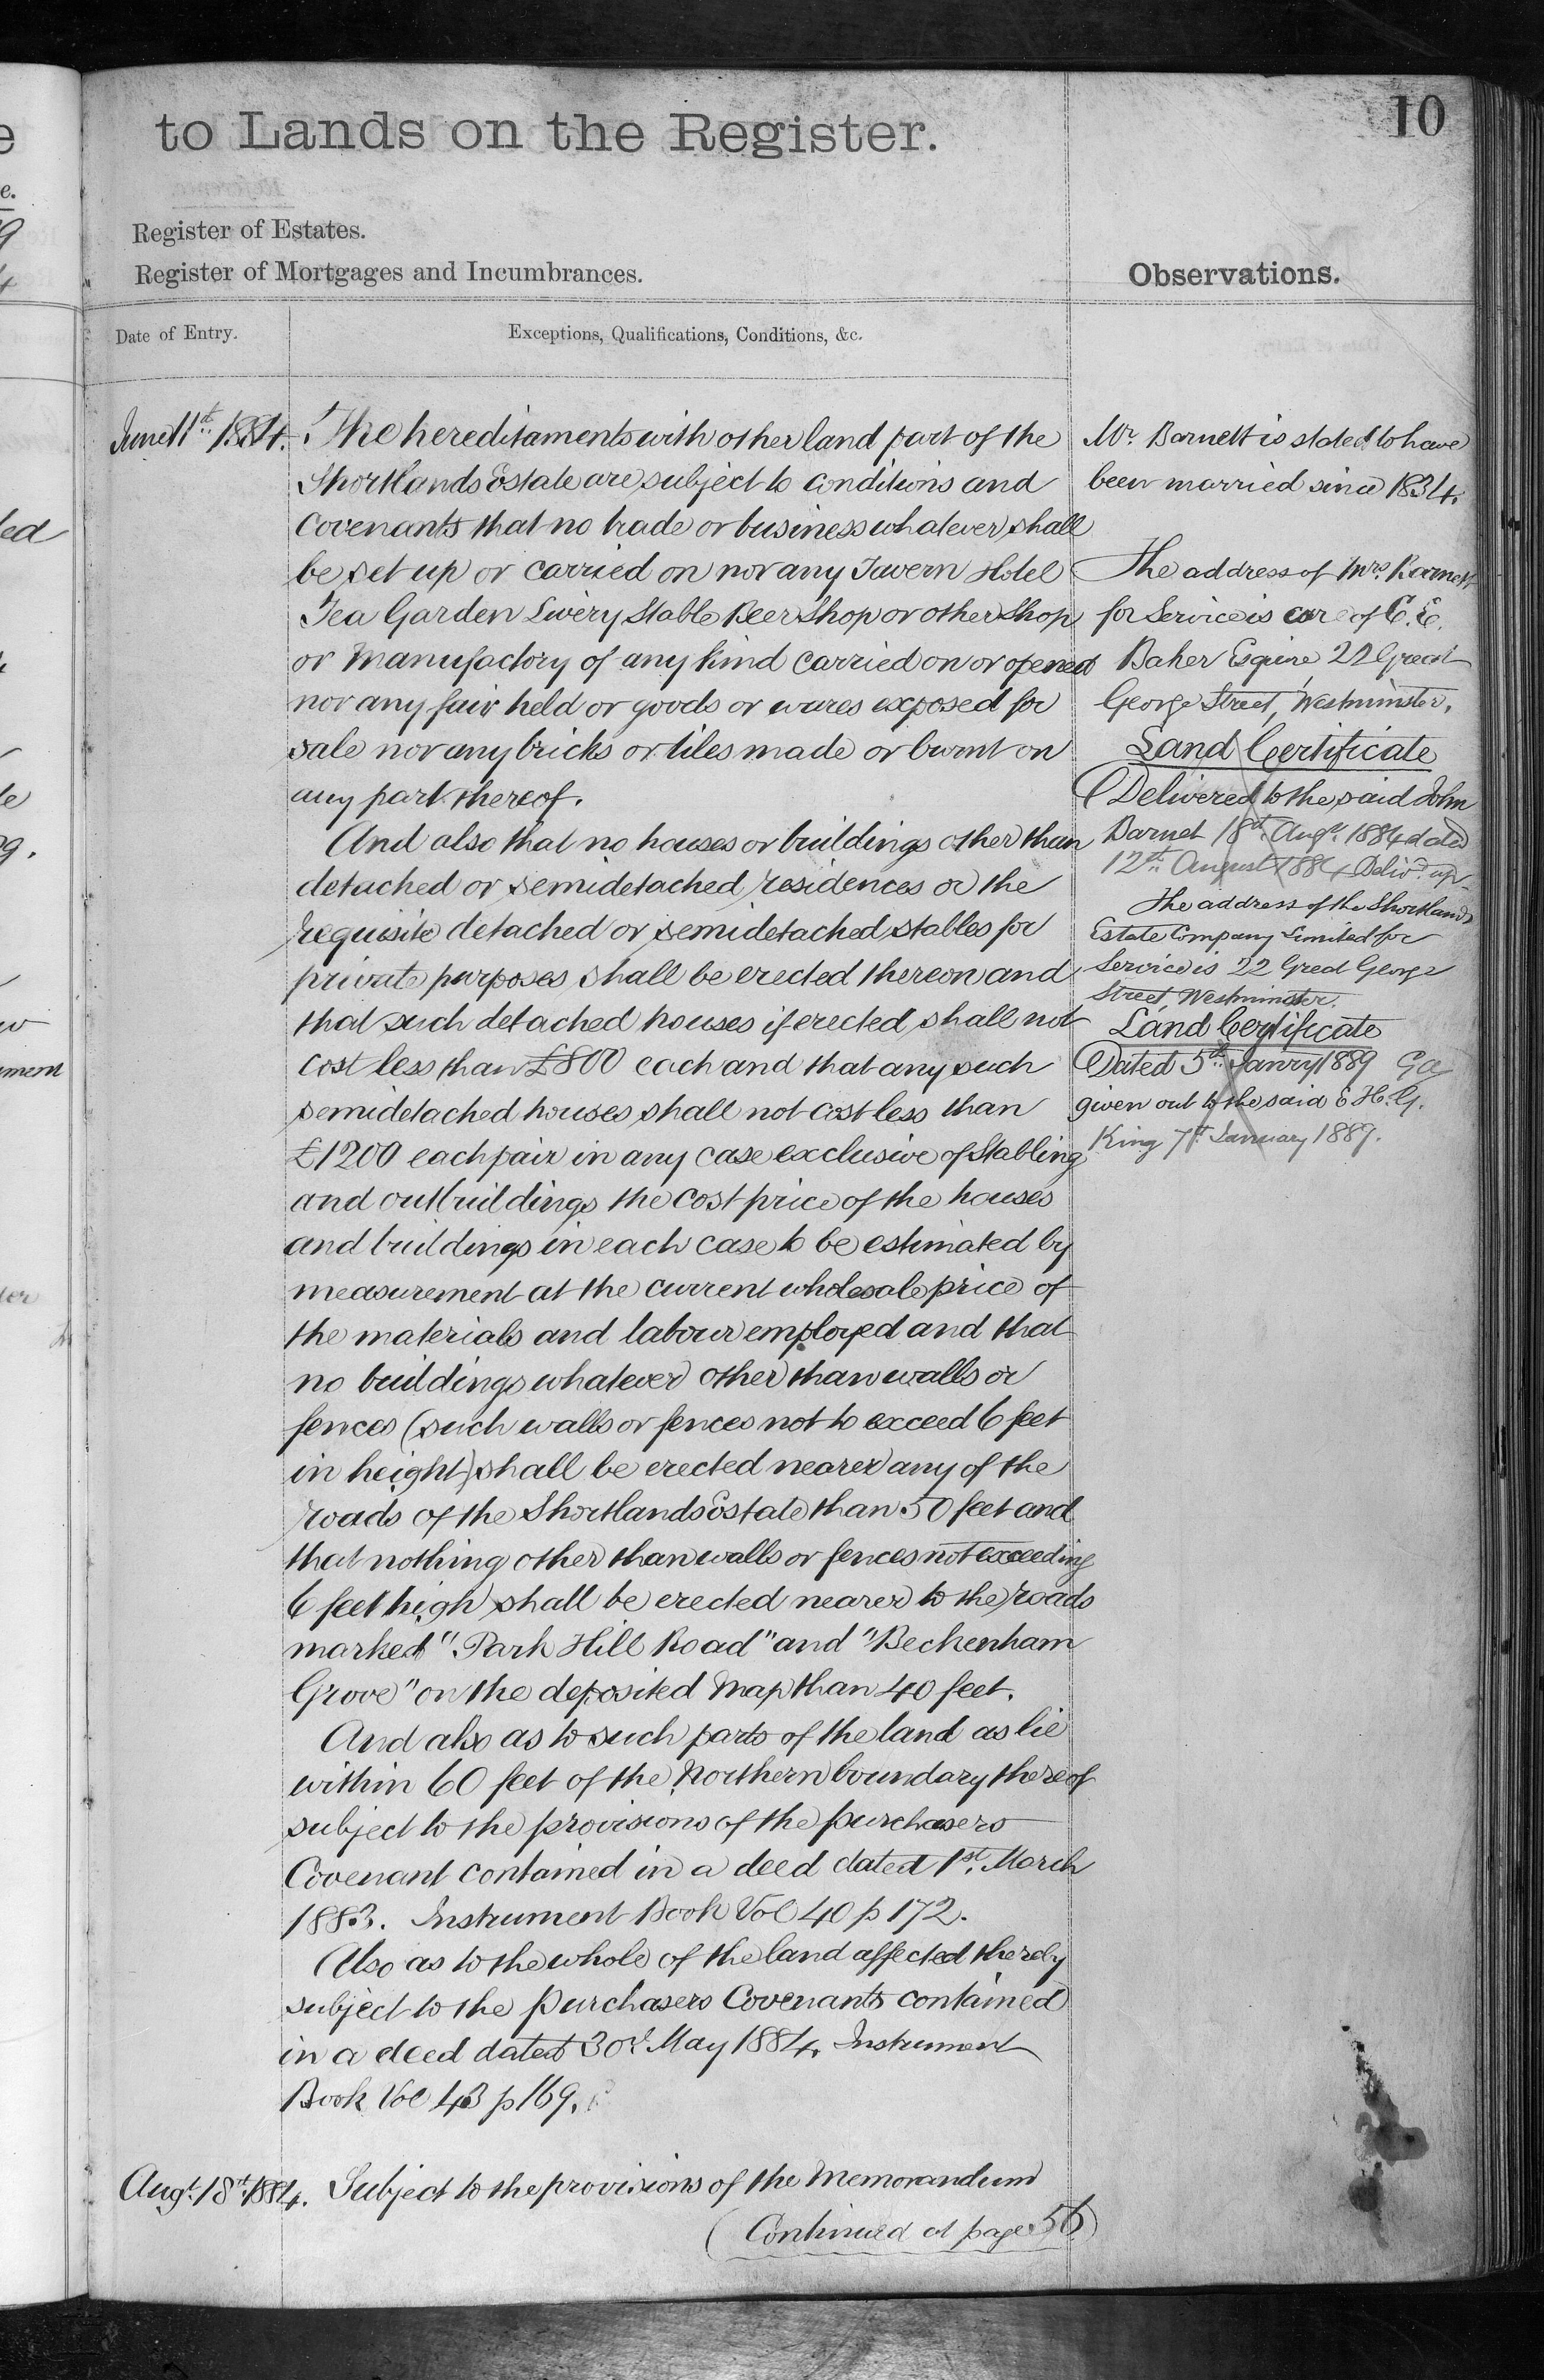 to Lands on the Register.
10
Register of Estates.
Register of Mortgages and Incumbrances.
Observations.
Date of Entry.
Exceptions, Qualifications, Conditions, &c.
June 11th 1884.
The hereditaments with other land part of the
Shortlands Estate are subject to conditions and
Covenants that no trade or business whatever shall
be set up or carried on nor any Tavern Hotel
Tea Garden Livery Stable Beer Shop or other Shop
or Manufactory of any kind carried on or opened
nor any fair held or goods or wares exposed for
sale nor any bricks or tiles made or burnt on
any part thereof.
And also that no houses or buildings other than
detached or semidetached residences or the
requisite detached or semidetached stables for
private purposes shall be erected thereon and
that such detached houses if erected shall not
cost less than £800 each and that any such
semidetached houses shall not cost less than
£1200 each pair in any case exclusive of Stabling
and outbuildings the cost price of the houses
and buildings in each case to be estimated by
measurement at the current wholesale price of
the materials and labour employed and that
no buildings whatever other than walls or
fences (such walls or fences not to exceed 6 feet
in height) shall be erected nearer any of the
roads of the Shortlands Estate than 50 feet and
that nothing other than walls or fences not exceeding
6 feet high shall be erected nearer to the roads
marked "Park Hill Road" and "Beckenham
Grove" on the deposited Map than 40 feet.
And also as to such parts of the land as lie
within 60 feet of the Northern boundary thereof
subject to the provisions of the purchasers
Covenant contained in a deed dated 1st. March
1883. Instrument Book Vol 40 p 172.
Also as to the whole of the land affected thereby
subject to the purchasers Covenants contained
in a deed dated 30th May 1884. Instrument
Book Vol 43 p 169.
Augt. 18th 1884.
Subject to the provisions of the Memorandum
(Continued at page 56)
Mr. Barnett is stated to have
been married since 1834.
The address of Mrs. Barnett
for Service is care of C. E.
Baker Esquire 22 Great
George Street, Westminster.
Land Certificate
Delivered to the said John
Barnet 18th. Augt. 1884 dated
12th August 1884 Delivd. up
The address of the Shortlands
Estate Company Limited for
Service is 22 Great George
Street, Westminster.
Land Certificate
Dated 5th. Janry 1889
given out to the said E. H. G.
King 7th January 1889.